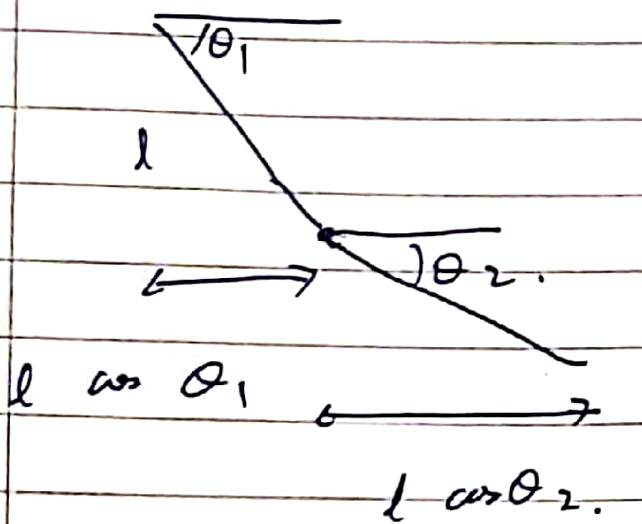 θ1
l
θ2.
l cos θ1
l cos θ2.